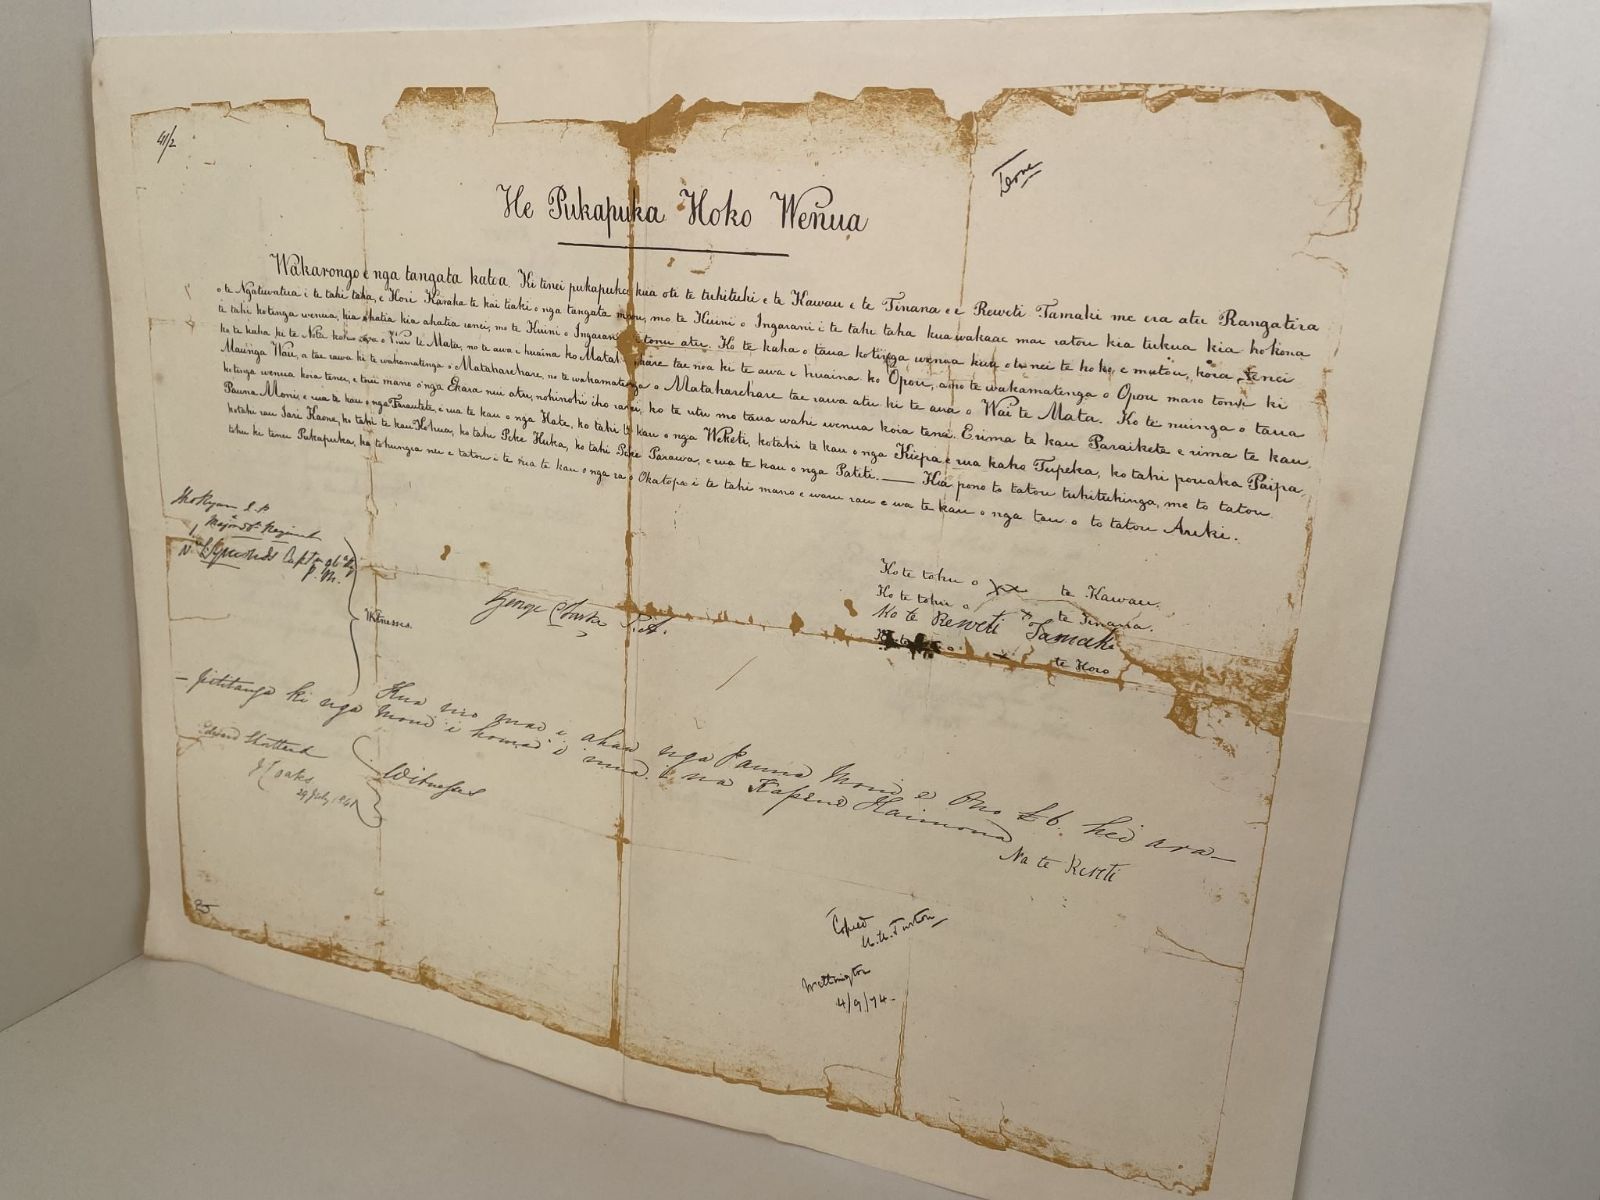 41/2
Done
He Pukapuka Hoko Wenua
Wakarongo e nga tangata katoa. Ki tenei pukapuka kua oti te tuhituhi e te Kawau e te Tinana e Reweti Tamaki me era atu Rangatira
o te Ngatiwatua i te tahi taha, e Hori Karaka te kai tiaki o nga tangata maori, mo te Kuini o Ingarani i te tahi taha kua wakaae mai ratou kia tukua kia hokona
te tahi kotinga wenua, kia ahatia kia ahatia ranei, mo te Kuini o Ingarani tonu atu. Ko te kaha o taua kotinga wenua kua oti nei te hoko, e matou, koia tenei
ko te kaha ki te Nota ko te awa o Wai te Mata, no te awa i huaina ko Mataharehare tae noa ki te awa i huaina ko Opou, a no te wakamatenga o Opou maro tonu ki
Maunga Wau, a tae rawa ki te wakamatenga o Mataharehare, no te wakamatenga o Mataharehare tae rawa atu ki te awa o Wai te Mata. Ko te nuinga o taua
kotinga wenua koia tenei, e toru mano o nga Ekara nui atu, nohinohi iho ranei, ko te utu mo taua wahi wenua koia tenei. Erima te kau Paraikete e rima te kau
Pauna Moni, e rua te kau o nga Tarautete, e rua te kau o nga Hate, ko tahi te kau o nga Weketi, kotahi te kau o nga Kiepa e wa kaho Tupeka, ko tahi pouaka Paipa,
kotahi rau Iari Kaone, ko tahi te kau Kohua, ko tahi Peke Huka, ko tahi Peke Parawa, e rua te kau o nga Patiti. — Kia pono to tatou tuhituhinga, me to tatou
tohu ki tenei Pukapuka, ko tohungia nei e tatou i te rua te kau o nga ra o Okatopa i te tahi mano e waru rau e wa te kau o nga tau o to tatou Ariki.
Major
Capt
P. M.
Witnesses
George Clarke P.A.
Ko te tohu o te Kawau.
Ko te tohu o te Tinana.
Ko te Reweti Tamaki
te Horo
Kua riro mai i ahau nga Pauna Moni e Ono £6. hei ara-
-pititanga ki nga moni i homai i mua i na Kapene Haimona
Na te Reweti
Edward Shortland
J Coates
29 July 1841
Witnesses
Copied
H.H. Turton
Wellington
4/9/74